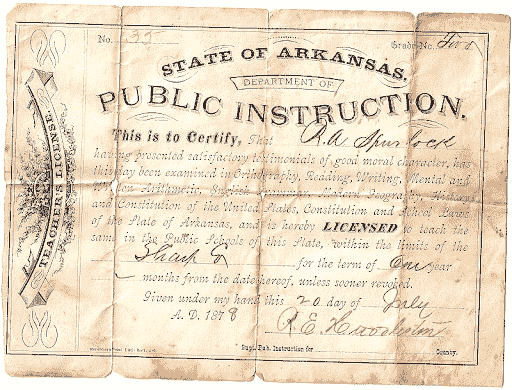 No. 35 Grade No. Two
STATE OF ARKANSAS,
DEPARTMENT OF
PUBLIC INSTRUCTION.
TEACHER'S LICENSE
This is to Certify, That R.A. Spurlock
having presented satisfactory testimonials of good moral character, has
this day been examined in Orthography, Reading, Writing, Mental and
Written Arithmetic, English Grammar, Modern Geography, History
and Constitution of the United States, Constitution and School Laws
of the State of Arkansas, and is hereby LICENSED to teach the
same in the Public Schools of this State, within the limits of the
Sharp Co for the term of One year
months from the date hereof, unless sooner revoked.
Given under my hand this 20 day of July
A. D. 1878
R.E.
Supt. Pub. Instruction for County.